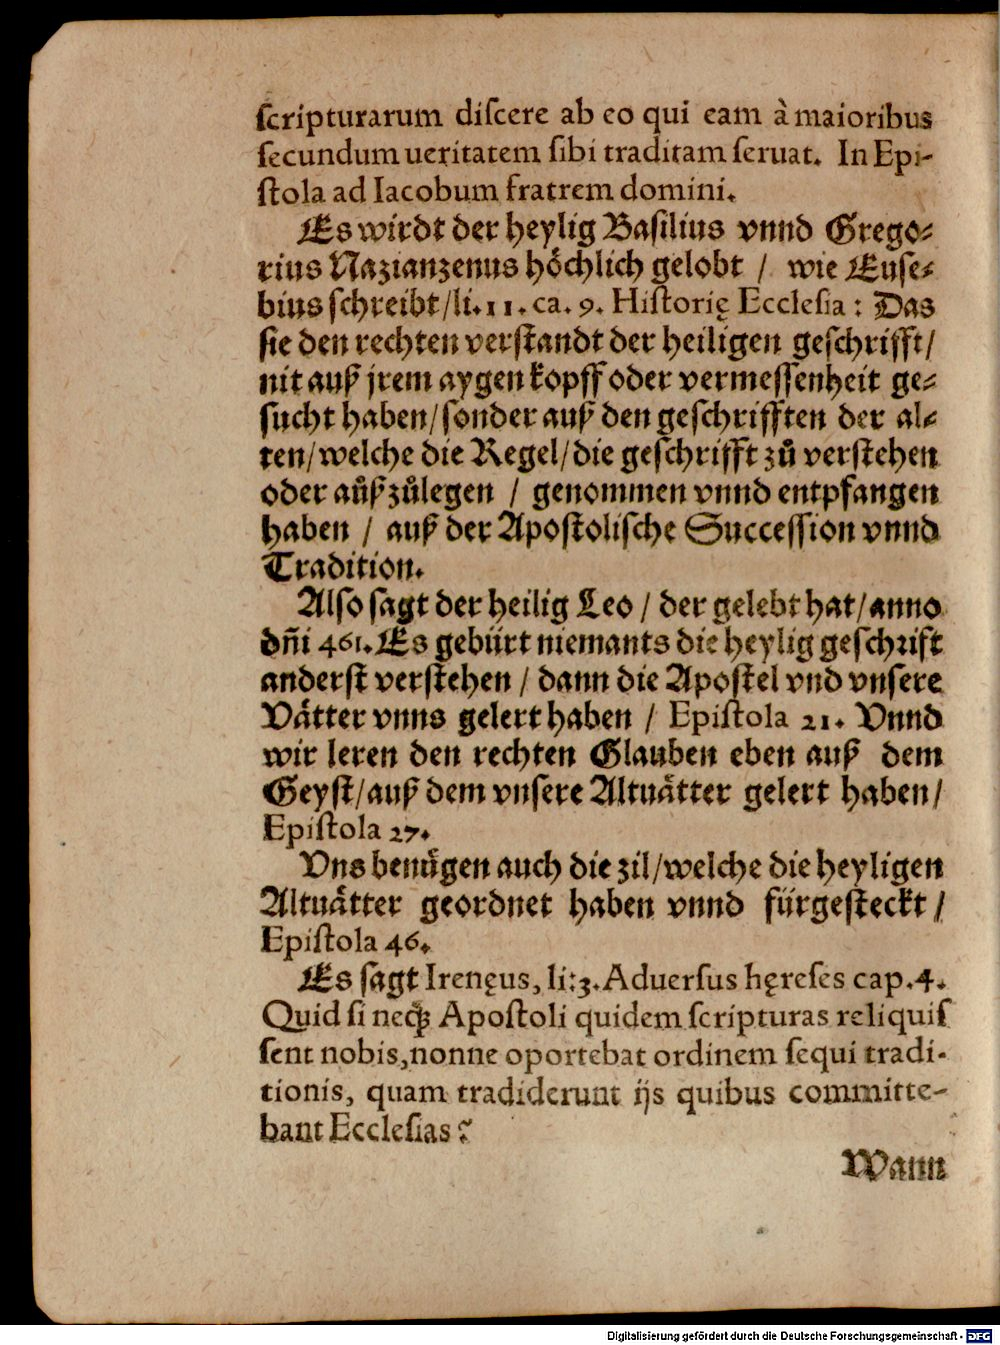 ſcripturarum diſcere ab eo qui eam à maioribus
ſecundum ueritatem ſibi traditam ſeruat. In Epi-
ſtola ad Iacobum fratrem domini.
Es wirdt der heylig Baſilius vnnd Grego⸗
rius Nazianzenus hoͤchlich gelobt / wie Euſe⸗
bius ſchreibt/li.11.ca.9. Hiſtorię Eccleſia: Das
ſie den rechten verſtandt der heiligen geſchrifft/
nit auß jrem aygen kopff oder vermeſſenheit ge⸗
ſucht haben/ſonder auß den geſchrifften der al⸗
ten/welche die Regel/die geſchrifft zů verſtehen
oder aůßzůlegen / genommen vnnd entpfangen
haben / auß der Apoſtoliſche Succeſſion vnnd
Tradition.
Alſo ſagt der heilig Leo / der gelebt hat/anno
dñi 461. Es gebürt niemants die heylig geſchrift
anderſt verſtehen / dann die Apoſtel vnd vnſere
Vaͤtter vnns gelert haben / Epiſtola 21. Vnnd
wir leren den rechten Glauben eben auß dem
Geyſt/auß dem vnſere Altuaͤtter gelert haben/
Epiſtola 27.
Vns benuͤgen auch die zil/welche die heyligen
Altuaͤtter geordnet haben vnnd fürgeſteckt /
Epiſtola 46.
Es ſagt Irenęus, li:3. Aduerſus hęreſes cap.4.
Quid ſi neqꝫ Apoſtoli quidem ſcripturas reliquiſ
ſent nobis,nonne oportebat ordinem ſequi tradi-
tionis, quam tradiderunt ijs quibus committe-
bant Eccleſias?
Wann
Digitalisierung gefördert durch die Deutsche Forschungsgemeinschaft - DFG